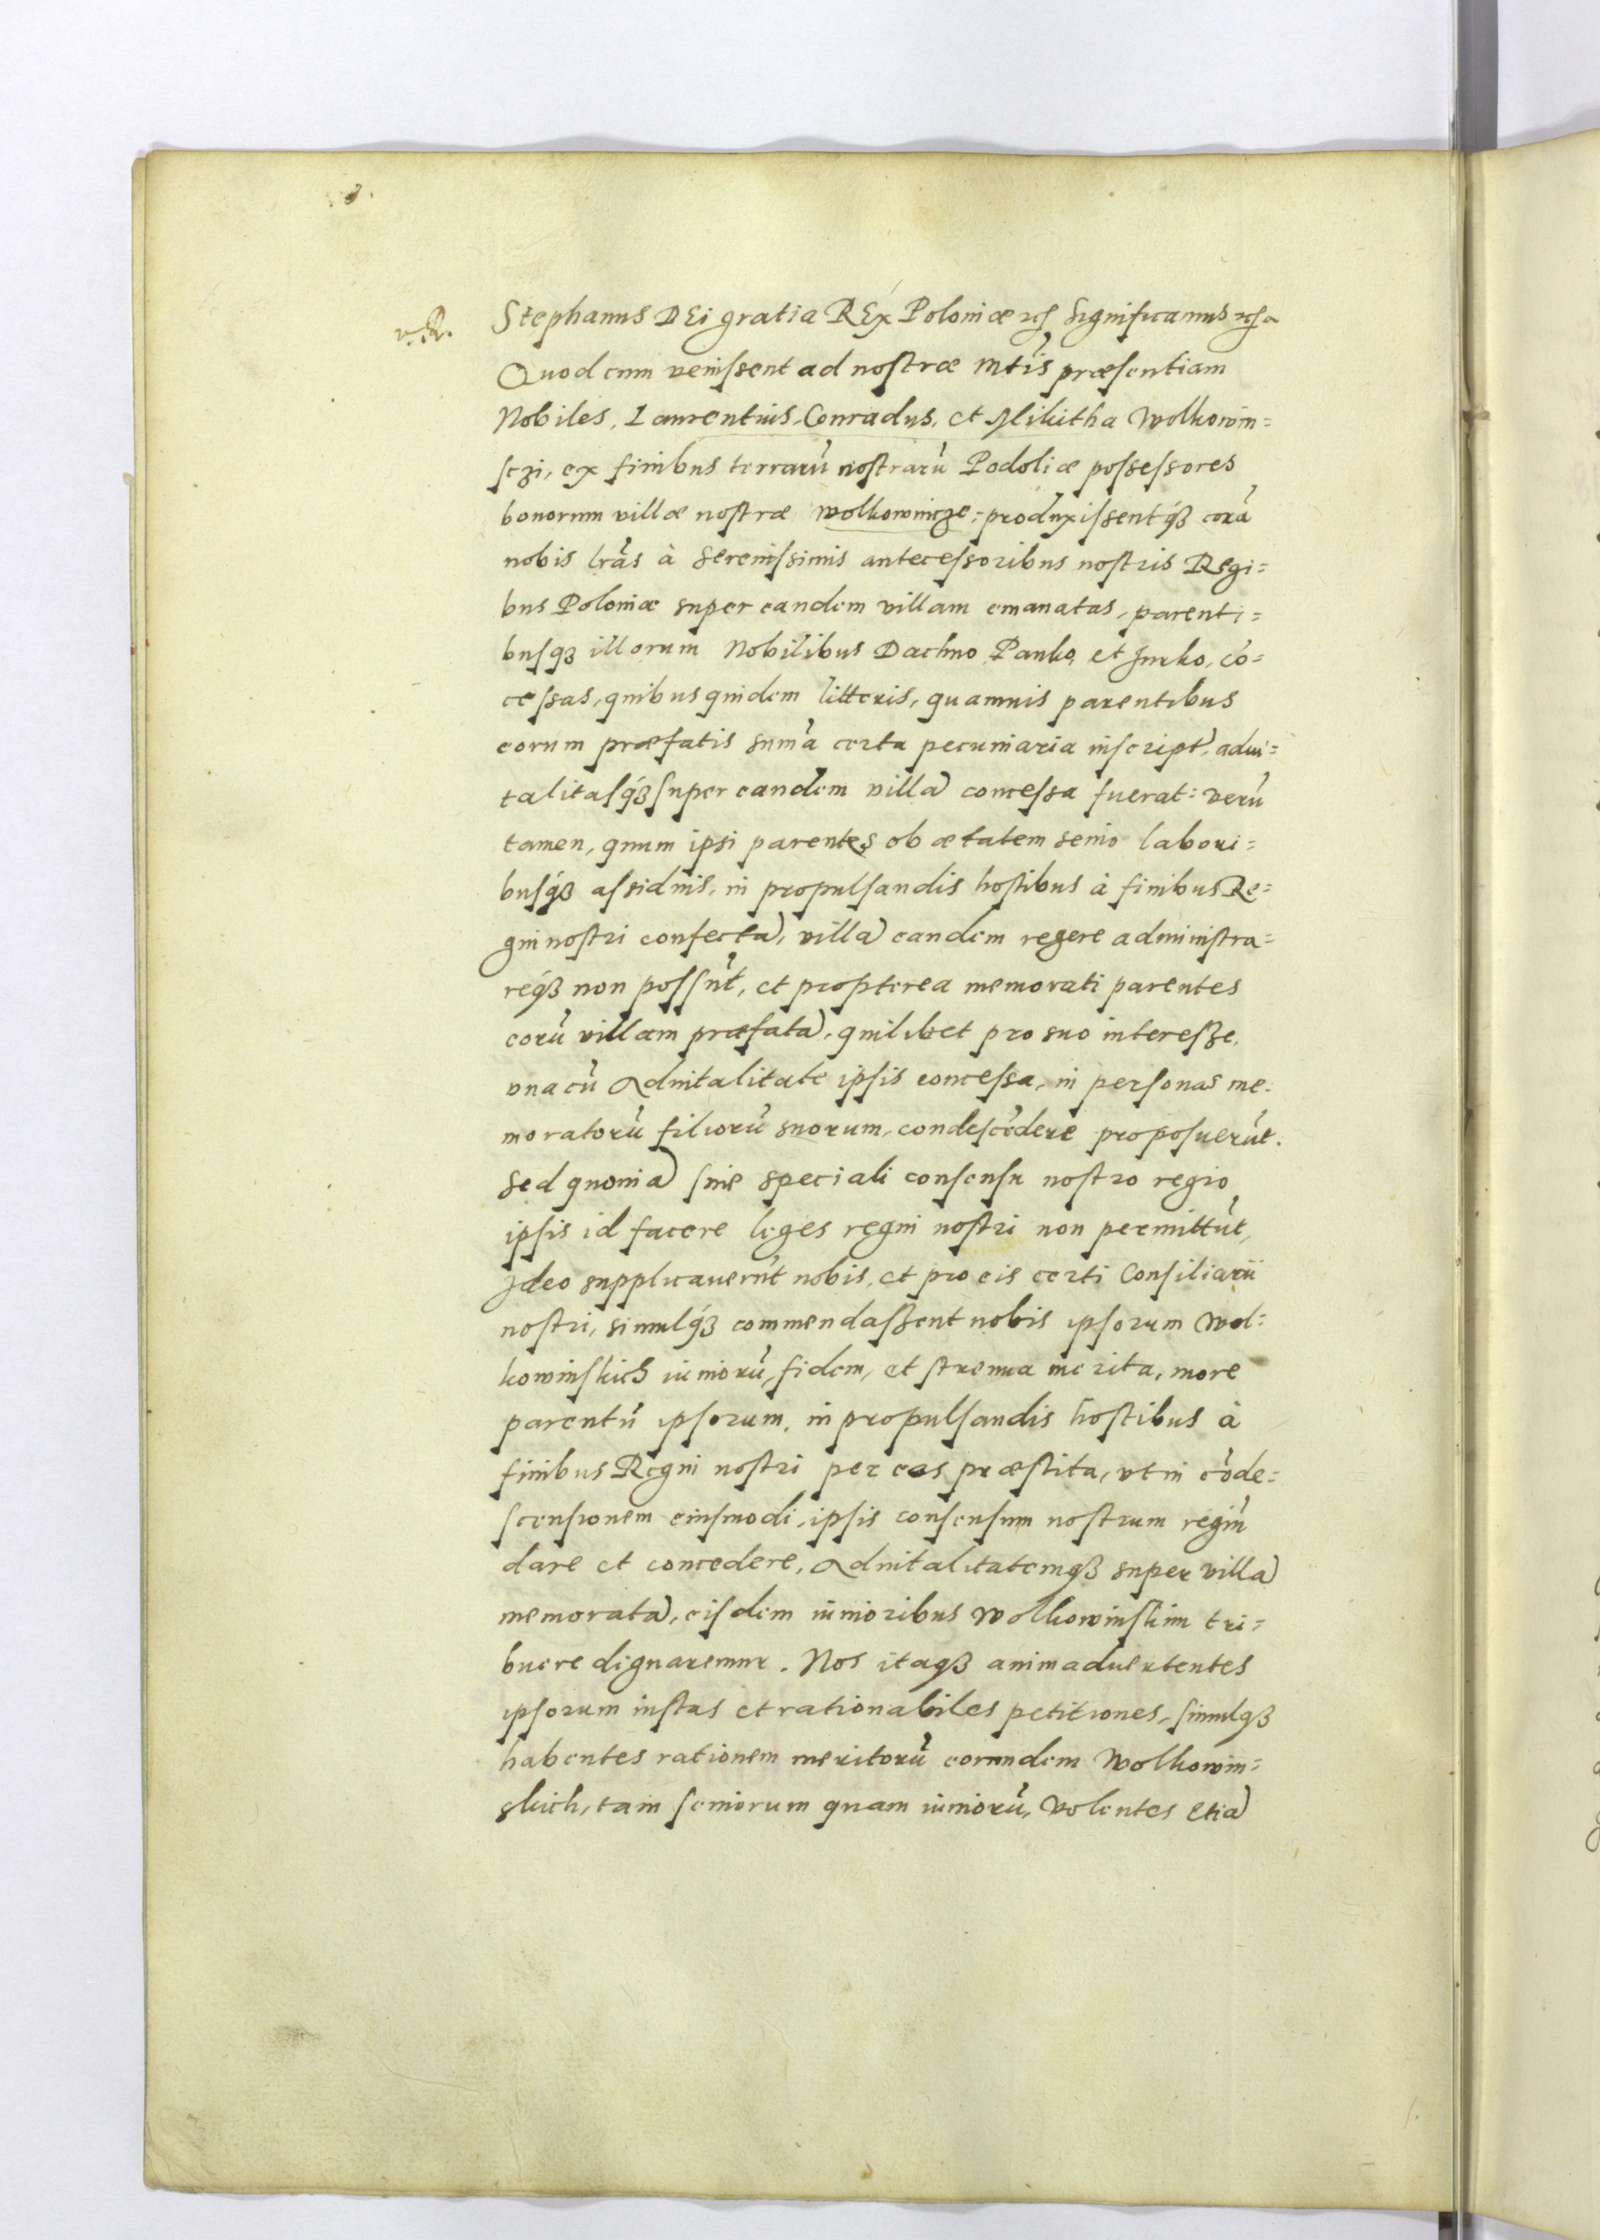 Stephanus DEi gratia REx Poloniæ etc Significamus etc
Quod cum venissent ad nostræ Mtĩs præsentiam
Nobiles, Laurentius, Conradus, et Mikitha Wolkowin=
sczi, ex finibus terrarũ nostrarũ Podoliæ possessores
bonorum villæ nostræ Wolkowincze: produxissentqꝫ corã
nobis lrãs à Serenissimis antecessoribus nostris Regi=
bus Poloniæ super eandem villam emanatas, parenti=
busqꝫ illorum Nobilibus Dachno Panko et Jurko, cõ=
cessas, quibus quidem litteris, quamuis parentibus
eorum præfatis sum̃a certa pecuniaria inscript̃, adui=
talitasqꝫ super eandem villã concessa fuerat: verũ
tamen, quum ipsi parentes ob ætatem senio labori=
busqꝫ assiduis, in propulsandis hostibus à finibus Re=
gni nostri confectã, villã eandem regere administra=
reqꝫ non possũt, et propterea memorati parentes
eorũ villam præfatã, quilibet pro suo interesse,
vna cũ Aduitalitate ipsis concessa, in personas me=
moratorũ filiorũ suorum, condescẽdere proposuerũt.
Sed quoniã sine speciali consensu nostro regio
ipsis id facere leges regni nostri non permittũt,
Jdeo supplicauerũt nobis, et pro eis certi Consiliarii
nostri, simulqꝫ commendassent nobis ipsorum Wol=
kowinskich iuniorũ, fidem, et strenua merita, more
parentũ ipsorum, in propulsandis hostibus à
finibus Regni nostri per eos præstita, vt in cõde=
scensionem eiusmodi, ipsis consensum nostrum regiũ
dare et concedere, Aduitalitatemqꝫ super villã
memoratã, eisdem iunioribus Wolkowinskim tri=
buere dignaremur. Nos itaqꝫ animaduertentes
ipsorum iustas et rationabiles petitiones, simulqꝫ
habentes rationem meritorũ eorundem Wolkowin=
skich, tam seniorum quam iuniorũ, volentes etiã